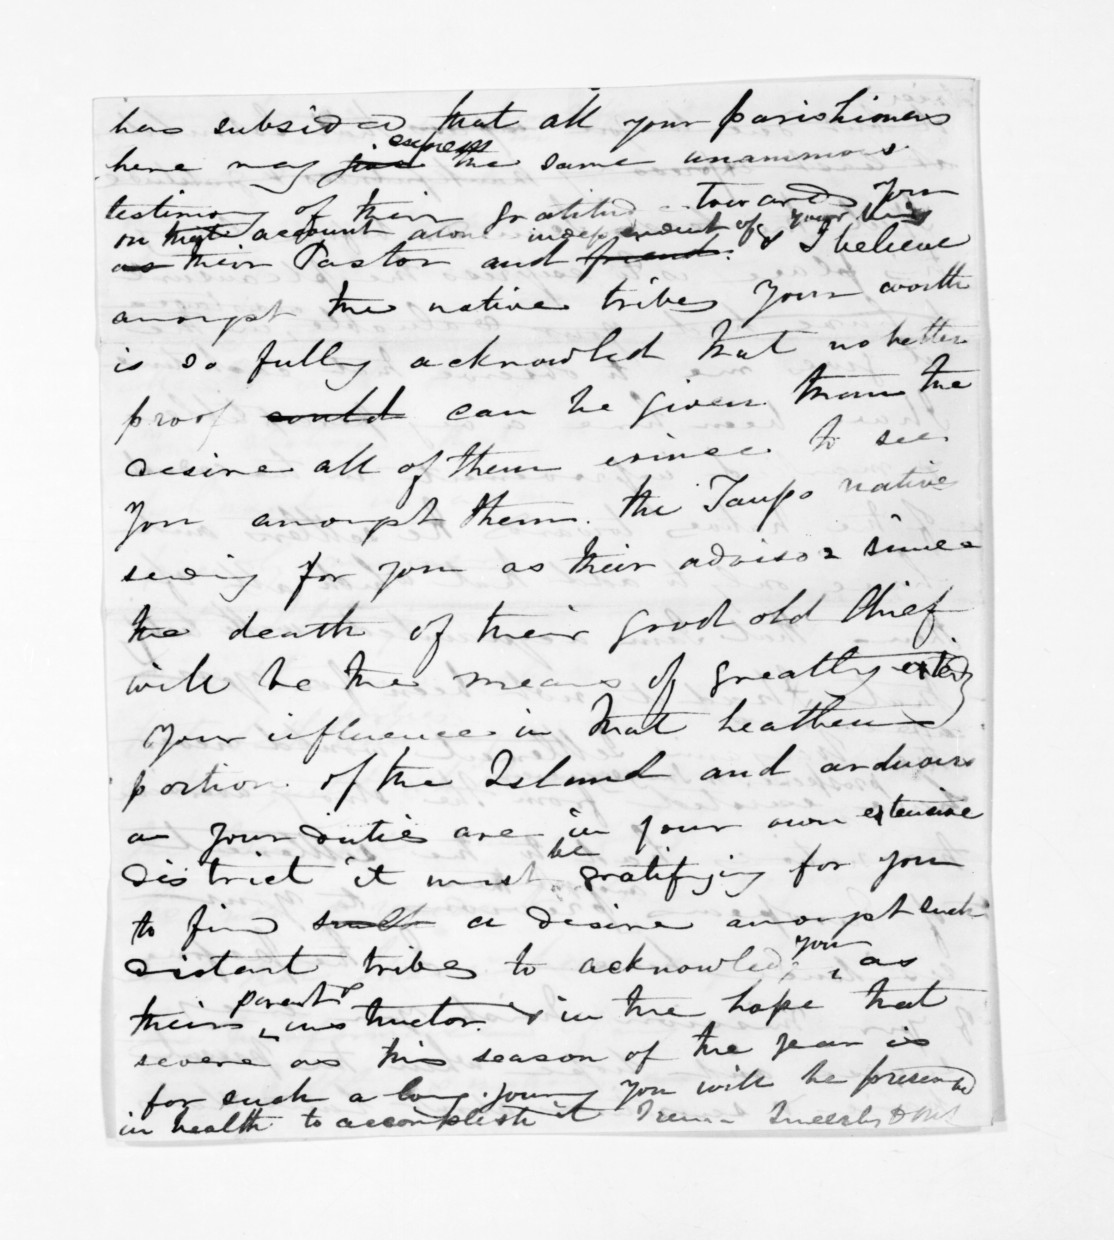 has subsided that all your parishioners
express
here may give the same unanimous
testimony of their gratitude towards you
on that account alone independent of your being
as their Pastor and friend. & I believe
amongst the native tribes your worth
is so fully acknowled that no better
proof could can be given than the
desire all of them evince to see
you amongst them. the Taupo natives
sending for you as their advisor since
the death of their good old Chief
will be the means of greatly extending
your influence in that heathen
portion of the Island and arduous
as your duties are in your own extensive
be
district it must gratifying for you
to find such a desire amongst such
you
distant tribes to acknowledge, as
parent &
their instructor & in the hope that
severe as this season of the year is
for such a long journey you will be preserved
in health to accomplish it I remn Sincerely